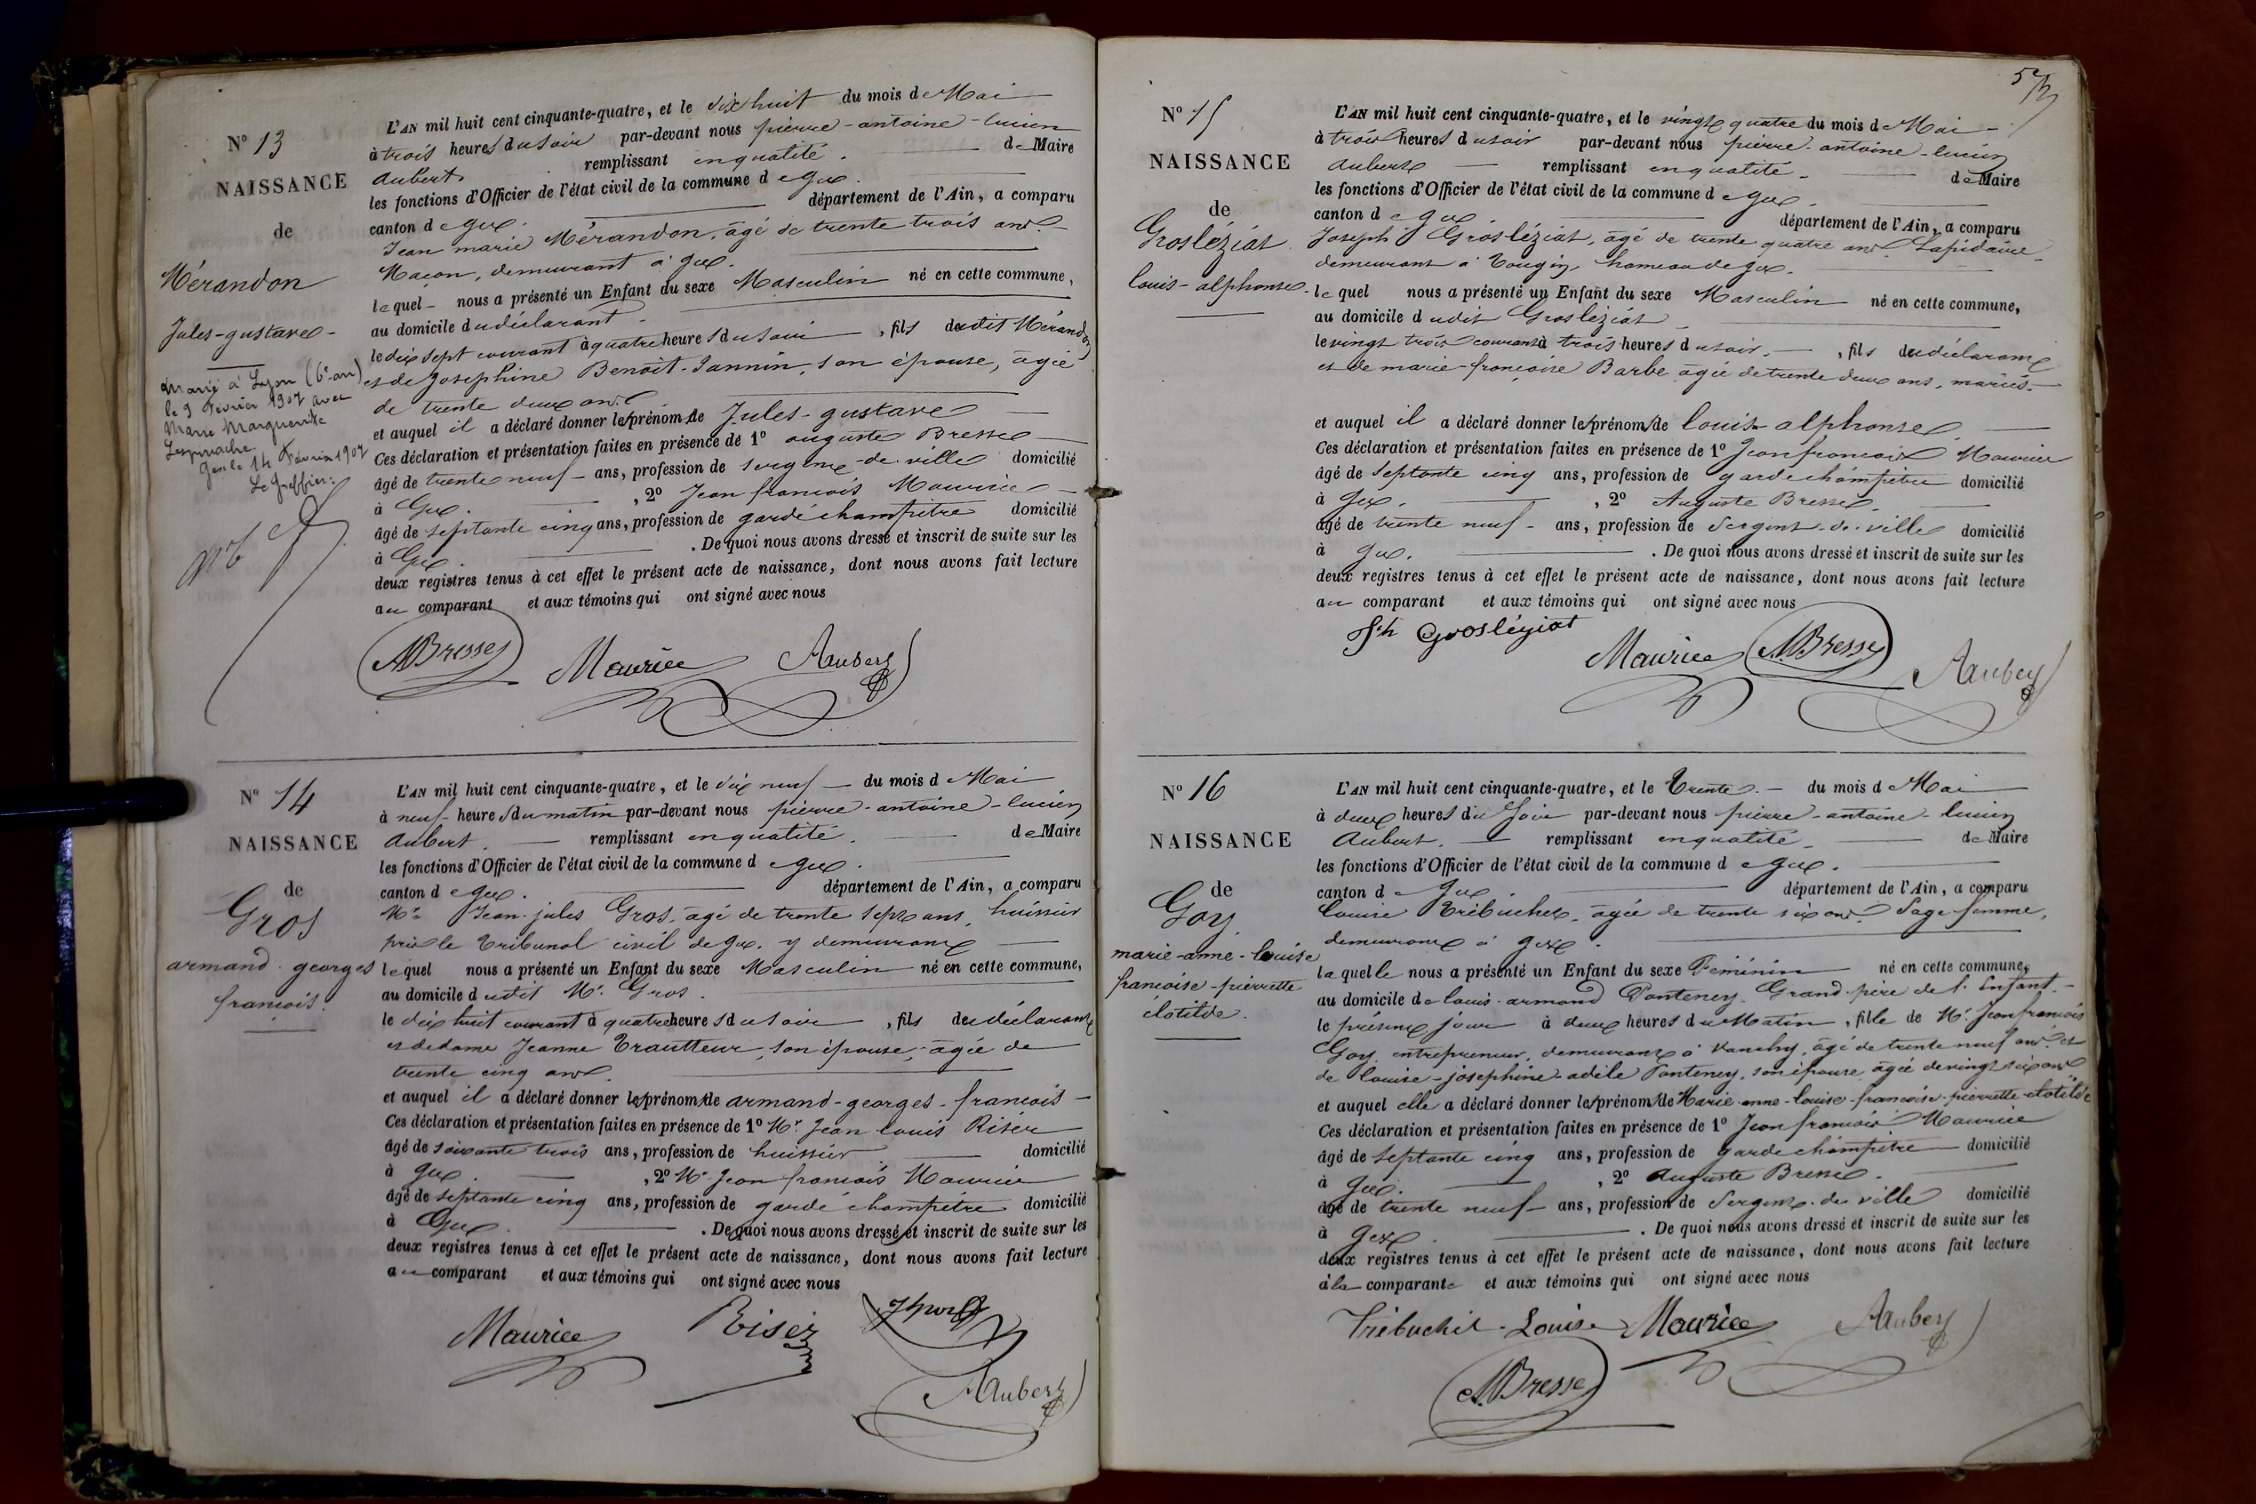 N° 13
NAISSANCE
de
Mérandon
Jules-gustave-
Marié à Lyon (6e arr)
le 9 Février 1907 avec
Marie Marguerite
Gex le 14 Février 1907
Le Greffier:
L'AN mil huit cent cinquante-quatre, et le dix huit du mois de Mai
à trois heures du soir par-devant nous pierre-antoine-lucien
Aubert remplissant en qualité de Maire
les fonctions d'Officier de l'état civil de la commune de gex.
canton de gex. département de l'Ain, a comparu
Jean marie Mérandon, âgé de trente trois ans.
Maçon, demeurant à gex.
lequel nous a présenté un Enfant du sexe Masculin né en cette commune,
au domicile du déclarant
le dix sept courant à quatre heures du soir, fils du dit Mérandon
et de Josephine Benoit-Jannin, son épouse, âgée
de trente deux ans.
et auquel il a déclaré donner le prénom de Jules-gustave
Ces déclaration et présentation faites en présence de 1° auguste Bresse
âgé de trente neuf ans, profession de sergent-de-ville domicilié
à Gex, 2° Jean françois Maurice
âgé de septante cinq ans, profession de garde champêtre domicilié
à Gex. De quoi nous avons dressé et inscrit de suite sur les
deux registres tenus à cet effet le présent acte de naissance, dont nous avons fait lecture
au comparant et aux témoins qui ont signé avec nous
ABresse Maurice Aubert
N° 14
NAISSANCE
de
Gros
armand-georges
françois.
L'AN mil huit cent cinquante-quatre, et le dix neuf du mois de Mai
à neuf heures du matin par-devant nous pierre-antoine-lucien
Aubert. remplissant en qualité de Maire
les fonctions d'Officier de l'état civil de la commune de gex.
canton de gex. département de l'Ain, a comparu
Mr Jean-jules Gros, âgé de trente sept ans, huissier
près le Tribunal civil de gex, y demeurant
lequel nous a présenté un Enfant du sexe Masculin né en cette commune,
au domicile dudit Mr. Gros.
le dix huit courant à quatre heures du soir, fils du déclarant
et de dame Jeanne Trautteur, son épouse, âgée de
trente cinq ans.
et auquel il a déclaré donner le prénom de armand-georges-françois
Ces déclaration et présentation faites en présence de 1° Mr Jean louis Riser
âgé de soixante trois ans, profession de huissier domicilié
à gex, 2° Mr Jean françois Maurice
âgé de septante cinq ans, profession de garde champêtre domicilié
à Gex. De quoi nous avons dressé et inscrit de suite sur les
deux registres tenus à cet effet le présent acte de naissance, dont nous avons fait lecture
au comparant et aux témoins qui ont signé avec nous
Maurice Riser
Aubert
N° 15
NAISSANCE
de
Grosléziat
louis-alphonse-
L'AN mil huit cent cinquante-quatre, et le vingt quatre du mois de Mai
à trois heures du soir par-devant nous pierre-antoine-lucien
Aubert remplissant en qualité de Maire
les fonctions d'Officier de l'état civil de la commune de gex.
canton de gex département de l'Ain, a comparu
Joseph Grosléziat, âgé de trente quatre ans, Lapidaire
demeurant à Tougin, hameau de gex.
lequel nous a présenté un Enfant du sexe Masculin né en cette commune,
au domicile dudit Grosléziat
le vingt trois courant à trois heures du soir, fils du déclarant
et de marie-françoise Barbe âgée de trente deux ans, mariés.
et auquel il a déclaré donner le prénom de louis alphonse.
Ces déclaration et présentation faites en présence de 1° Jean françois Maurice
âgé de septante cinq ans, profession de garde champêtre domicilié
à Gex. , 2° Auguste Bresse.
âgé de trente neuf ans, profession de Sergent-de-ville domicilié
à gex. De quoi nous avons dressé et inscrit de suite sur les
deux registres tenus à cet effet le présent acte de naissance, dont nous avons fait lecture
au comparant et aux témoins qui ont signé avec nous
Jh Grosléziat
Maurice ABresse Aubert
N° 16
NAISSANCE
de
Goy
marie-anne-louise
françoise-pierrette
clotilde.
L'AN mil huit cent cinquante-quatre, et le trente du mois de Mai
à deux heures du Soir par-devant nous pierre-antoine-lucien
Aubert. remplissant en qualité de Maire
les fonctions d'Officier de l'état civil de la commune de gex.
canton de gex département de l'Ain, a comparu
Louise Trébuchet, âgée de trente six ans, Sage femme,
demeurant à gex.
laquelle nous a présenté un Enfant du sexe Féminin né en cette commune,
au domicile de louis-armand Ponteney, Grand-père de l'Enfant.
le présent jour à deux heures du Matin, fille de Mr. Jean françois
Goy, entrepreneur, demeurant à Vanchy, âgé de trente neuf ans, et
de louise-josephine-adèle Ponteney, son épouse, âgée de vingt six ans
et auquel elle a déclaré donner le prénom de Marie-anne-louise-françoise-pierrette-clotilde
Ces déclaration et présentation faites en présence de 1° Jean françois Maurice
âgé de septante cinq ans, profession de garde champêtre domicilié
à Gex. , 2° auguste Bresse.
âgé de trente neuf ans, profession de Sergent-de-ville domicilié
à gex. De quoi nous avons dressé et inscrit de suite sur les
deux registres tenus à cet effet le présent acte de naissance, dont nous avons fait lecture
à la comparante et aux témoins qui ont signé avec nous
Trébuchet-Louise Maurice Aubert
ABresse